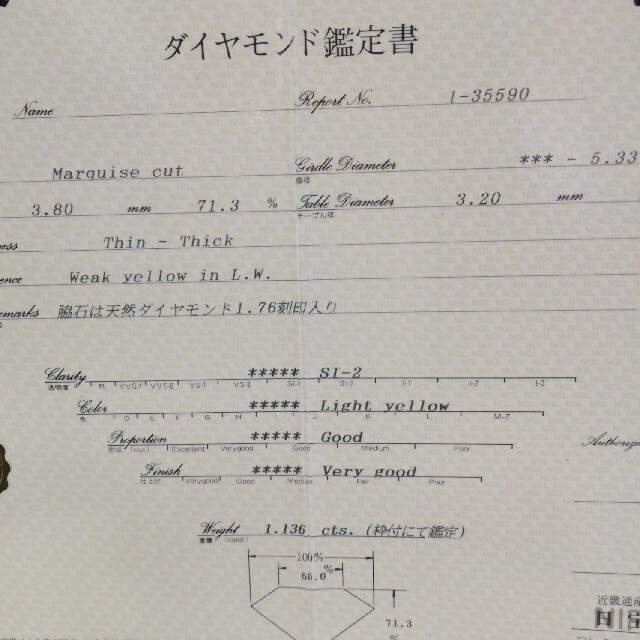 ダイヤモンド鑑定書
Name Report No. I-35590
Marquise cut Girdle Diameter *** - 5.33
直径
3.80 mm 71.3 % Table Diameter 3.20 mm
テーブル径
Thin - Thick
Weak yellow in L.W.
脇石は天然ダイヤモンド1.76刻印入り
Clarity ***** SI-2
透明度 FL VVS-1 VVS-2 VS-1 VS-2 SI-1 SI-2 I-1 I-2 I-3
Color ***** Light yellow
色 D E F G H I J K L M-Z
Proportion ***** Good
形状 (cut) Excellent Verygood Good Medium Poor
Finish ***** Very good
仕上げ Verygood Good Medium Fair Poor
Authorized
Weight 1.136 cts. (枠付にて鑑定)
重量 (carat)
100%
60.0%
71.3
%
近畿通産